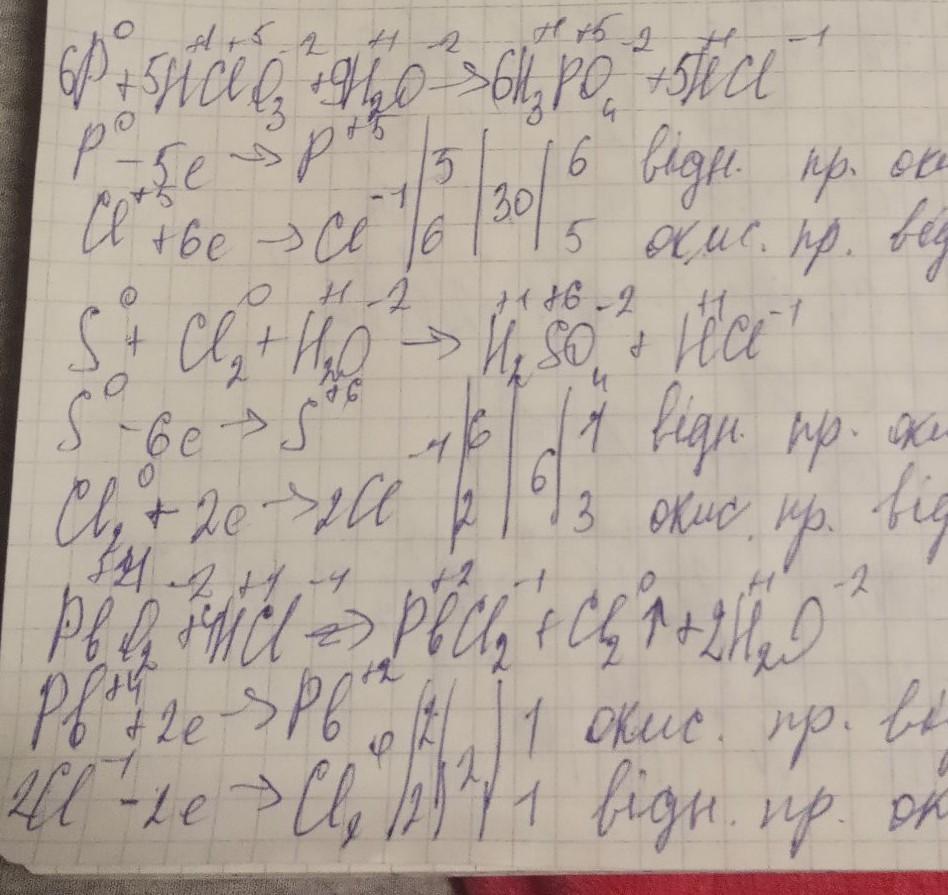 6P⁰ + 5H⁺¹Cl⁺⁵O₃⁻² + 9H₂⁺¹O⁻² → 6H₃⁺¹P⁺⁵O₄⁻² + 5H⁺¹Cl⁻¹
P⁰ - 5e → P⁺⁵ | 5 | 30 | 6 відн. пр. ок
Cl⁺⁵ + 6e → Cl⁻¹ | 6 | | 5 окис. пр. від
S⁰ + Cl₂⁰ + H₂⁺¹O⁻² → H₂⁺¹S⁺⁶O₄⁻² + H⁺¹Cl⁻¹
S⁰ - 6e → S⁺⁶ | 6 | 6 | 1 відн. пр. ок
Cl₂⁰ + 2e → 2Cl⁻¹ | 2 | | 3 окис. пр. від
Pb⁺⁴O₂⁻² + 4H⁺¹Cl⁻¹ → Pb⁺²Cl₂⁻¹ + Cl₂⁰↑ + 2H₂⁺¹O⁻²
Pb⁺⁴ + 2e → Pb⁺² | 2 | 2 | 1 окис. пр. ві
2Cl⁻¹ - 2e → Cl₂⁰ | 2 | | 1 відн. пр. ок